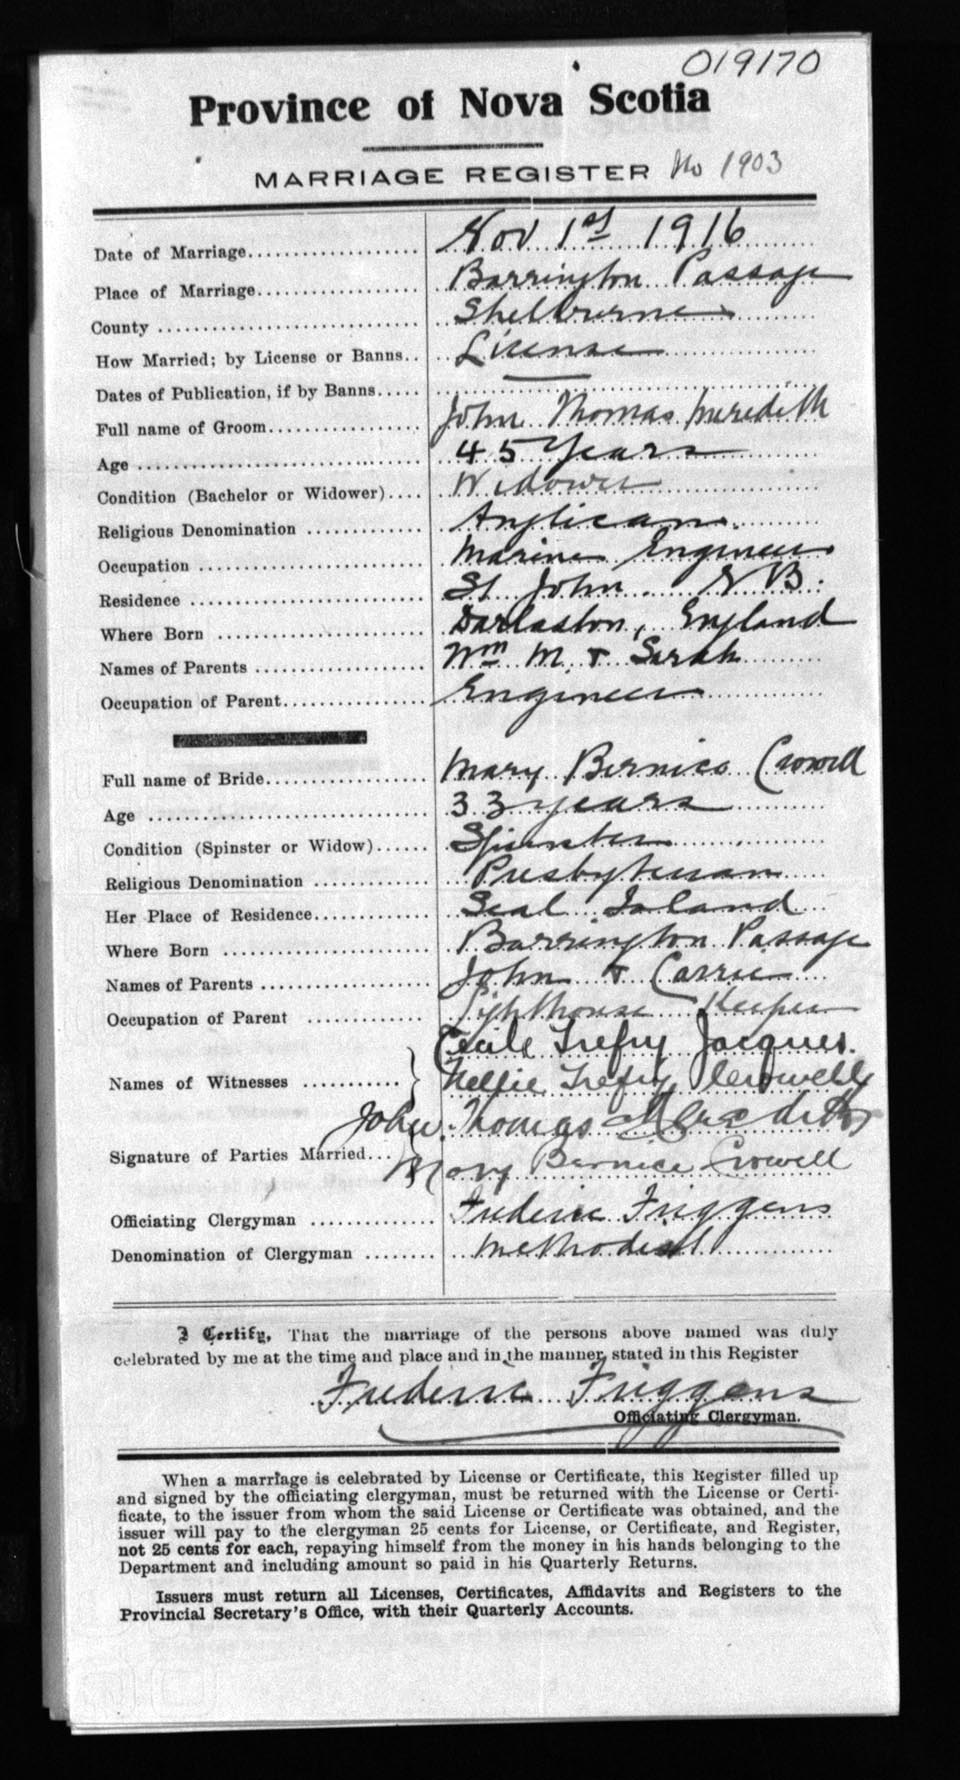 019170
Province of Nova Scotia
MARRIAGE REGISTER No 1903
Date of Marriage.................... Nov 1st 1916
Place of Marriage................... Barrington Passage
County .............................. Shelburne
How Married; by License or Banns.. License
Dates of Publication, if by Banns..... —
Full name of Groom.................. John Thomas Meredith
Age .................................. 45 years
Condition (Bachelor or Widower).... Widower
Religious Denomination .............. Anglican
Occupation .......................... Marine Engineer
Residence ........................... St John. N B.
Where Born ......................... Darlaston, England
Names of Parents .................... Wm M. & Sarah
Occupation of Parent................. Engineer
Full name of Bride................... Mary Bernice Crowell
Age .................................. 33 years
Condition (Spinster or Widow)...... Spinster
Religious Denomination .............. Presbyterian
Her Place of Residence.............. Seal Island
Where Born ......................... Barrington Passage
Names of Parents .................... John & Carrie
Occupation of Parent .............. Lighthouse Keeper
Cecile Trefry Jacques.
Names of Witnesses ............ } Nellie Trefry Crowell
John Thomas Meredith
Signature of Parties Married... } Mary Bernice Crowell
Officiating Clergyman ............... Frederic Friggens
Denomination of Clergyman ......... Methodist
I Certify, That the marriage of the persons above named was duly
celebrated by me at the time and place and in the manner stated in this Register
Frederic Friggens
Officiating Clergyman.
When a marriage is celebrated by License or Certificate, this Register filled up
and signed by the officiating clergyman, must be returned with the License or Certi-
ficate, to the issuer from whom the said License or Certificate was obtained, and the
issuer will pay to the clergyman 25 cents for License, or Certificate, and Register,
not 25 cents for each, repaying himself from the money in his hands belonging to the
Department and including amount so paid in his Quarterly Returns.
Issuers must return all Licenses, Certificates, Affidavits and Registers to the
Provincial Secretary's Office, with their Quarterly Accounts.